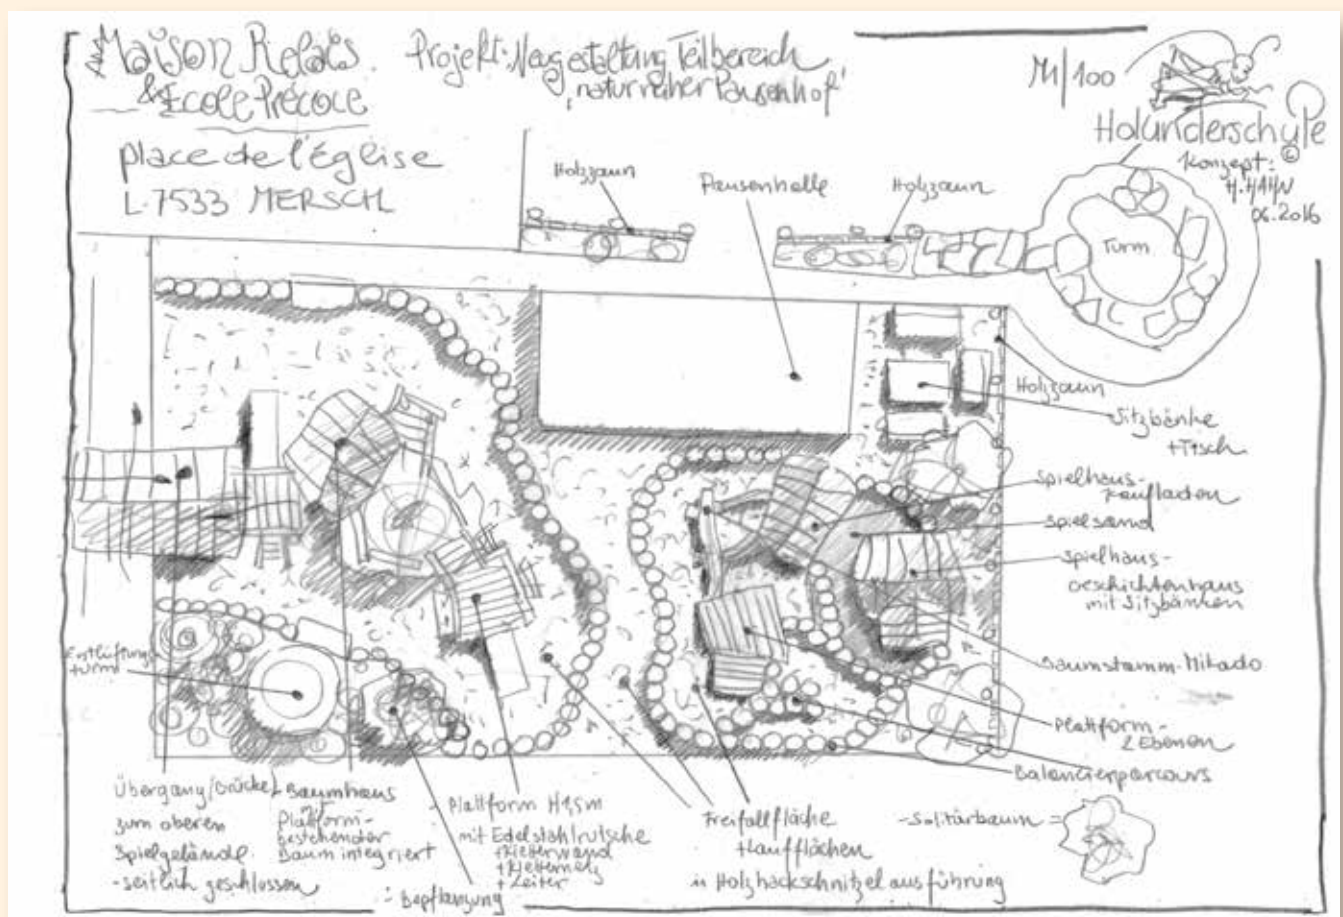 Maison Relais
& Ecole Précoce
place de l'Église
L-7533 MERSCH
Projekt: Neugestaltung Teilbereich
'naturnaher Pausenhof'
M1/100
Holunderschule
Konzept: ©
H. HAHN
06.2016
Holzzaun
Pausenhalle
Holzzaun
Turm
Holzzaun
Sitzbänke
+Tisch
Spielhaus-
Kaufladen
Spielsand
Spielhaus-
Geschichtenhaus
mit Sitzbänken
Baumstamm-Mikado
Plattform-
2 Ebenen
Balancierparcours
Entlüftungs
turm
Übergang/Brücke
zum oberen
Spielgelände
- seitlich geschlossen
Baumhaus
mit
Plattform-
bestehender
Baum integriert
- Bepflanzung
- Plattform H1,5m
mit Edelstahlrutsche
+Kletterwand
+Kletternetz
+Leiter
Freifallfläche
+Laufflächen
in Holzhackschnitzelausführung
-Solitärbaum =